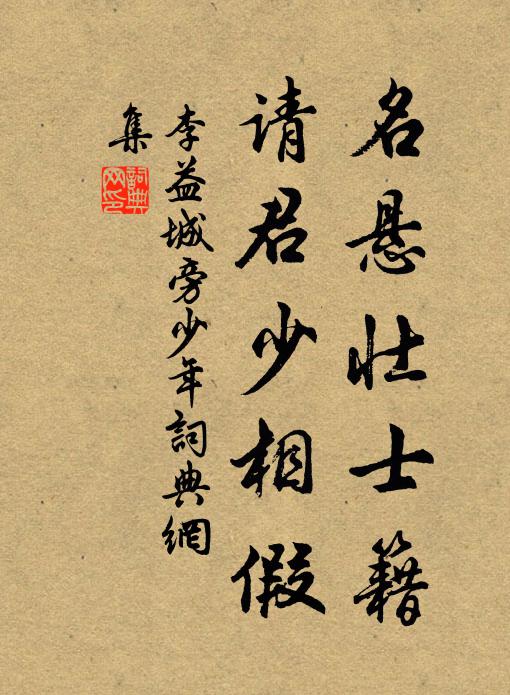 名悬壮士籍
请君少相假
李益城旁少年詞典網
集
詞典网印